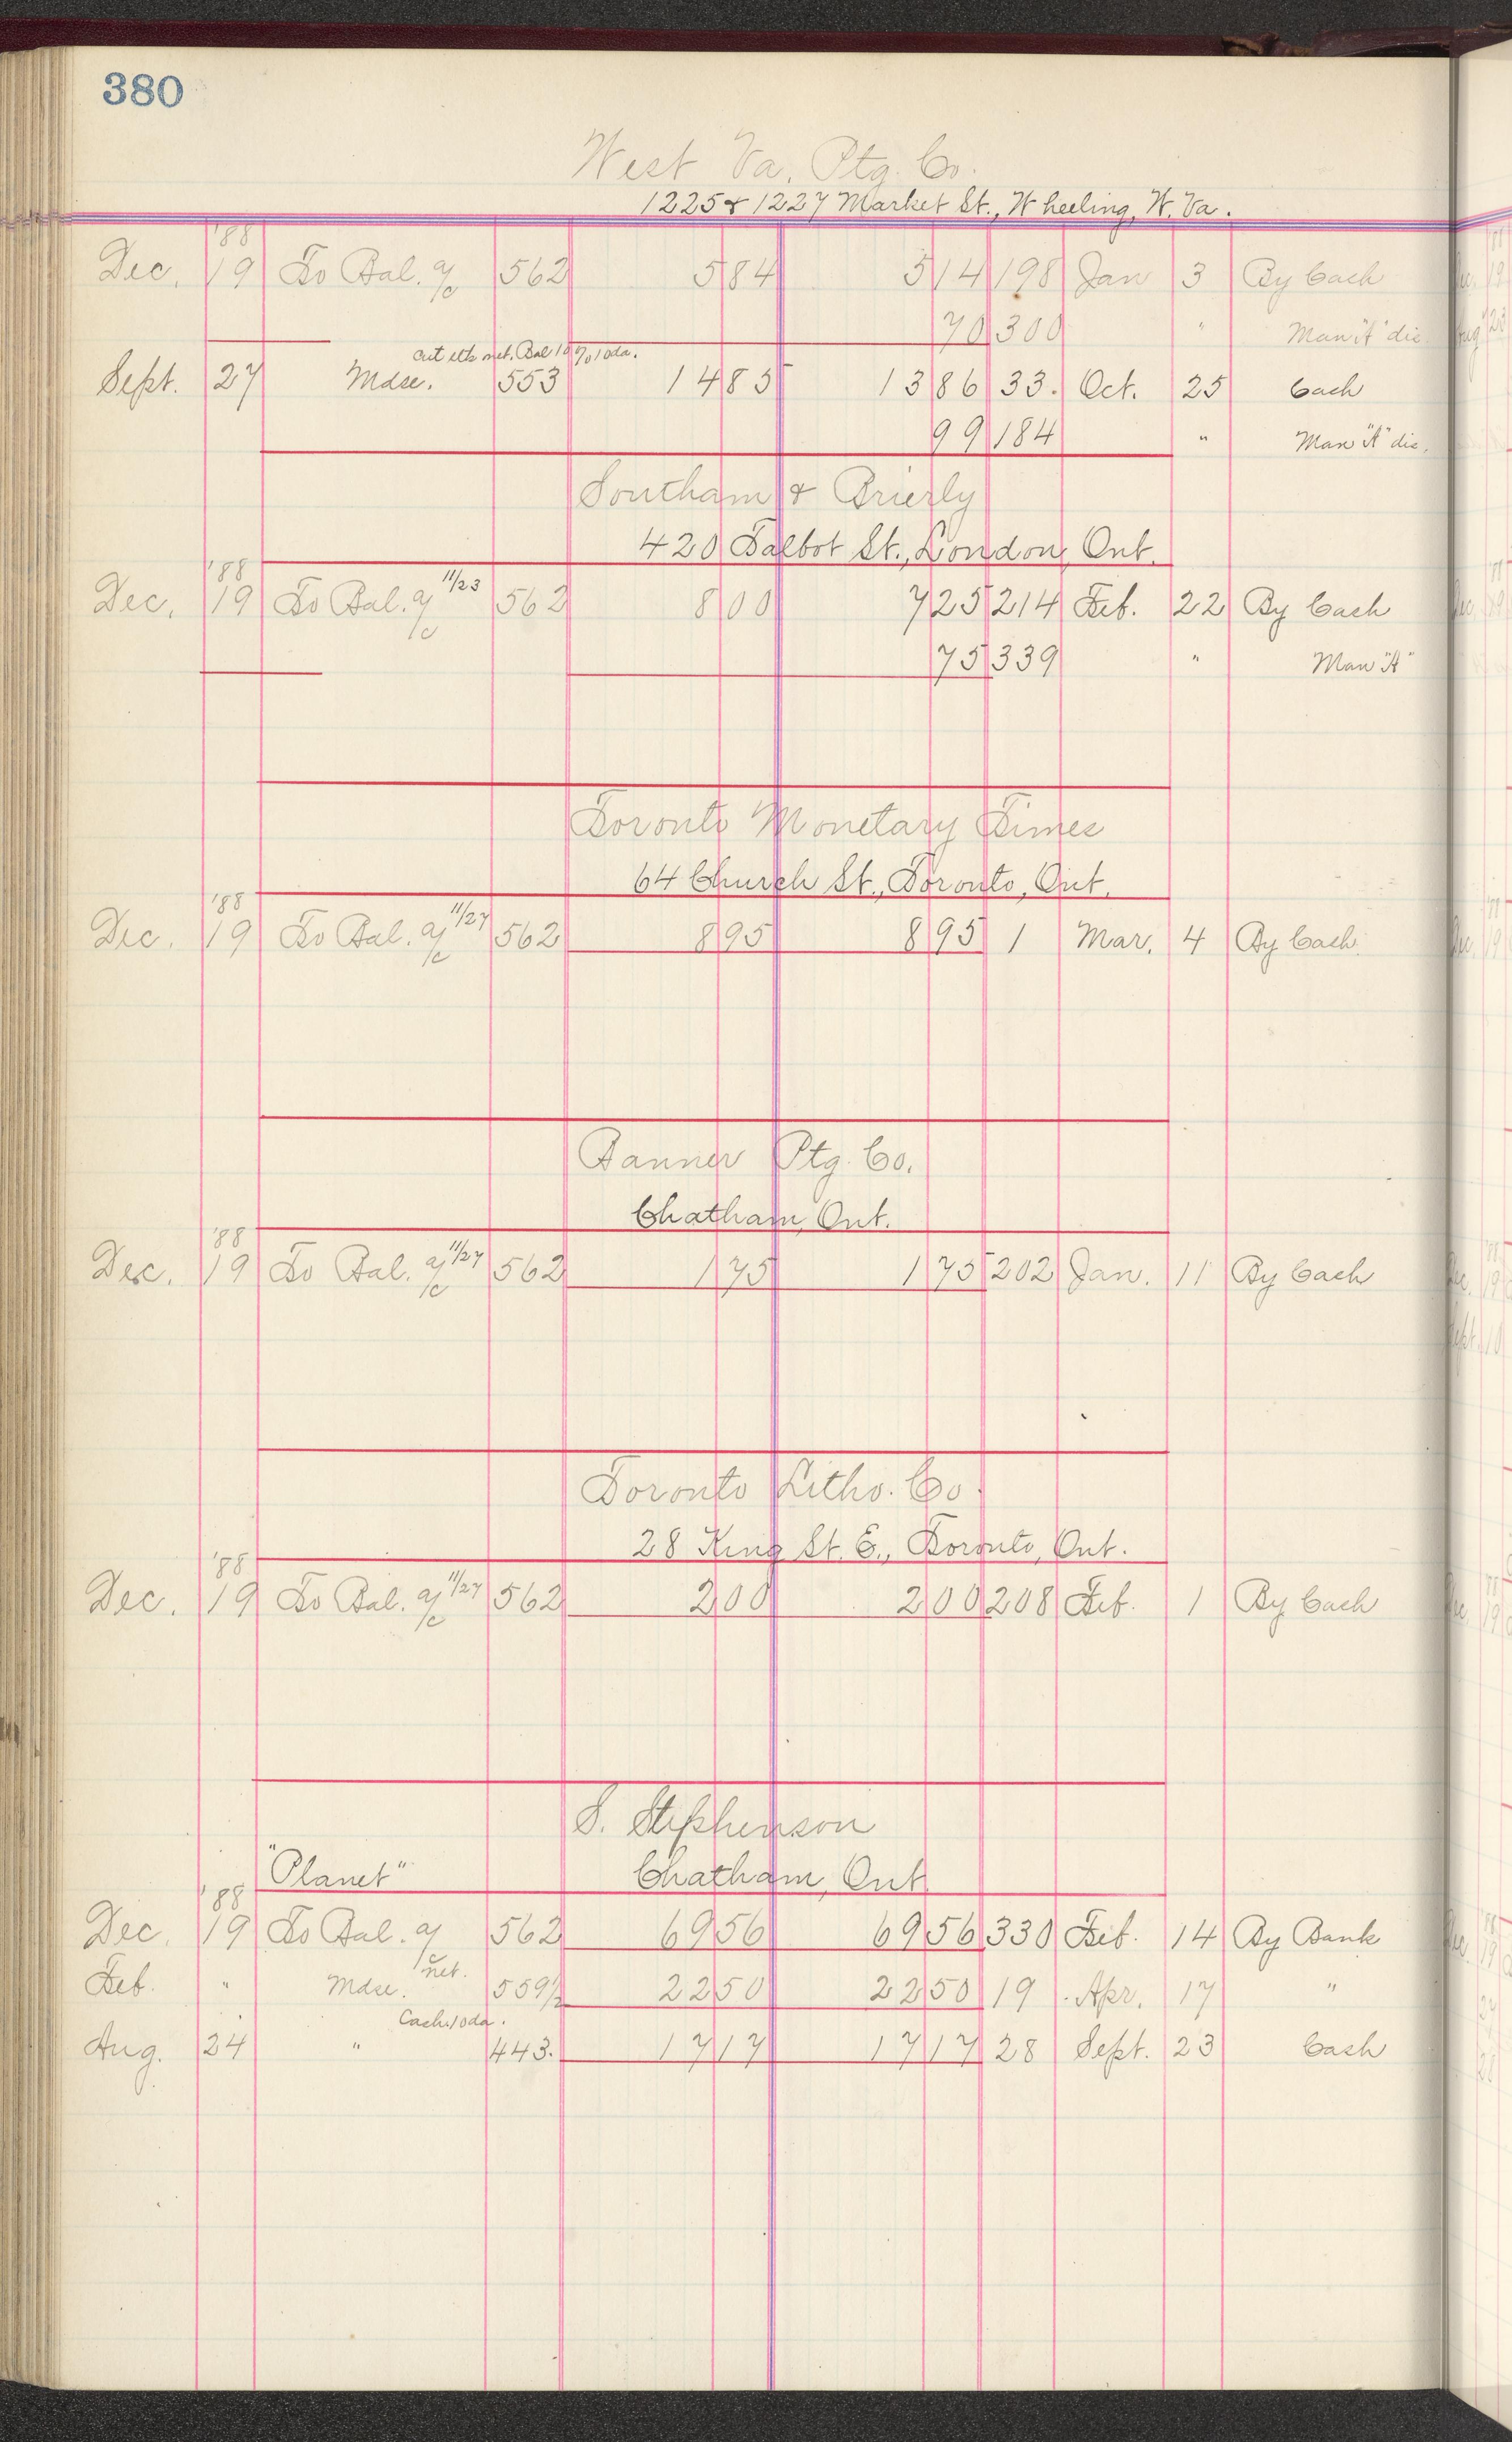 380
West Va. Ptg. Co.
1225 & 1227 Market St., Wheeling, W. Va.
'88
Dec. 19 To Bal. a/c 562 584 514 198 Jan 3 By Cash
70 300 " Man "A" dis.
net. Bal 10% 10da.
Sept. 27 Mdse. 553 1485 1386 33. Oct. 25 Cash
99 184 " Man "A" dis.
Southam & Brierly
420 Talbot St., London, Ont.
'88
Dec. 19 To Bal. a/c 11/23 562 800 725 214 Feb. 22 By Cash
75 339 " Man "A"
Toronto Monetary Times
64 Church St., Toronto, Ont.
'88
Dec. 19 To Bal. a/c 11/27 562 895 895 1 Mar. 4 By Cash
Banner Ptg. Co.
Chatham, Ont.
'88
Dec. 19 To Bal. a/c 11/27 562 175 175 202 Jan. 11 By Cash
Toronto Litho. Co.
28 King St. E., Toronto, Ont.
'88
Dec. 19 To Bal. a/c 11/27 562 200 200 208 Feb. 1 By Cash
S. Stephenson
"Planet" Chatham, Ont
'88
Dec. 19 To Bal. a/c 562 6956 6956 330 Feb. 14 By Bank
net.
Feb. " Mdse. 559½ 2250 2250 19 Apr. 17 "
Cash 10da.
Aug. 24 " 443. 1717 1717 28 Sept. 23 Cash